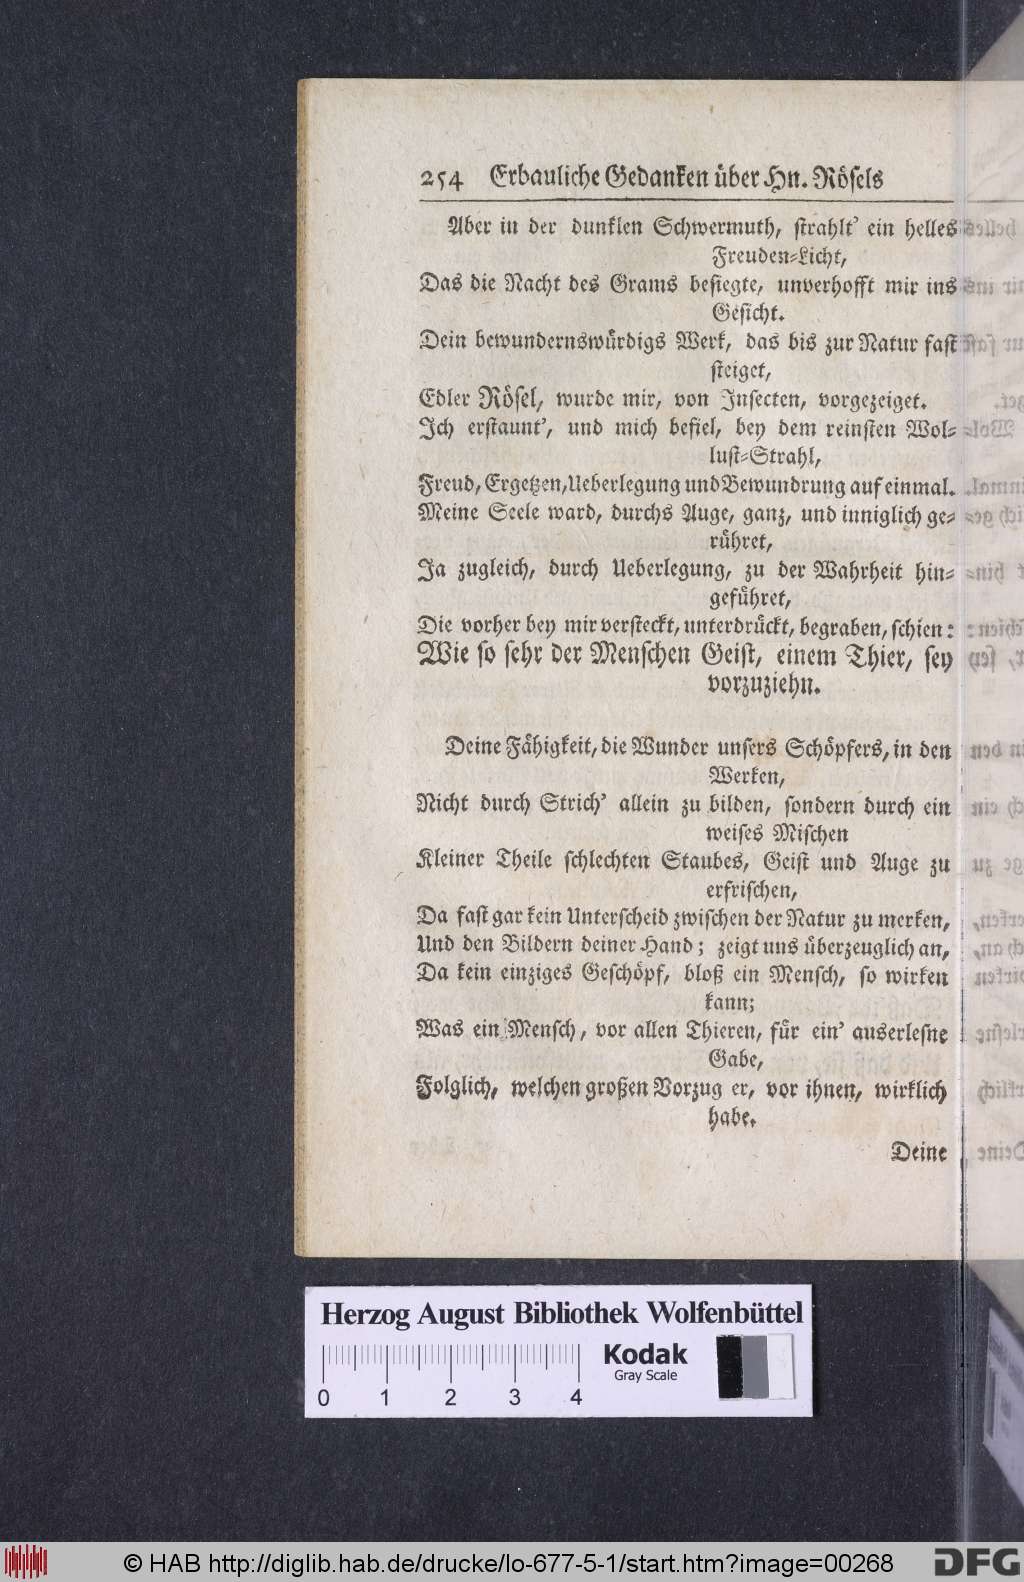 254 Erbauliche Gedanken über Hn. Rösels
Aber in der dunklen Schwermuth, strahlt' ein helles
Freuden-Licht,
Das die Nacht des Grams besiegte, unverhofft mir ins
Gesicht.
Dein bewundernswürdigs Werk, das bis zur Natur fast
steiget,
Edler Rösel, wurde mir, von Insecten, vorgezeiget.
Ich erstaunt', und mich befiel, bey dem reinsten Wol-
lust-Strahl,
Freud, Ergetzen, Ueberlegung und Bewundrung auf einmal.
Meine Seele ward, durchs Auge, ganz, und inniglich ge-
rühret,
Ja zugleich, durch Ueberlegung, zu der Wahrheit hin-
geführet,
Die vorher bey mir versteckt, unterdrückt, begraben, schien:
Wie so sehr der Menschen Geist, einem Thier, sey
vorzuziehn.
Deine Fähigkeit, die Wunder unsers Schöpfers, in den
Werken,
Nicht durch Strich' allein zu bilden, sondern durch ein
weises Mischen
Kleiner Theile schlechten Staubes, Geist und Auge zu
erfrischen,
Da fast gar kein Unterscheid zwischen der Natur zu merken,
Und den Bildern deiner Hand; zeigt uns überzeuglich an,
Da kein einziges Geschöpf, bloß ein Mensch, so wirken
kann;
Was ein Mensch, vor allen Thieren, für ein' auserlesne
Gabe,
Folglich, welchen großen Vorzug er, vor ihnen, wirklich
habe.
Deine
Herzog August Bibliothek Wolfenbüttel
Kodak
Gray Scale
0 1 2 3 4
© HAB http://diglib.hab.de/drucke/lo-677-5-1/start.htm?image=00268
DFG